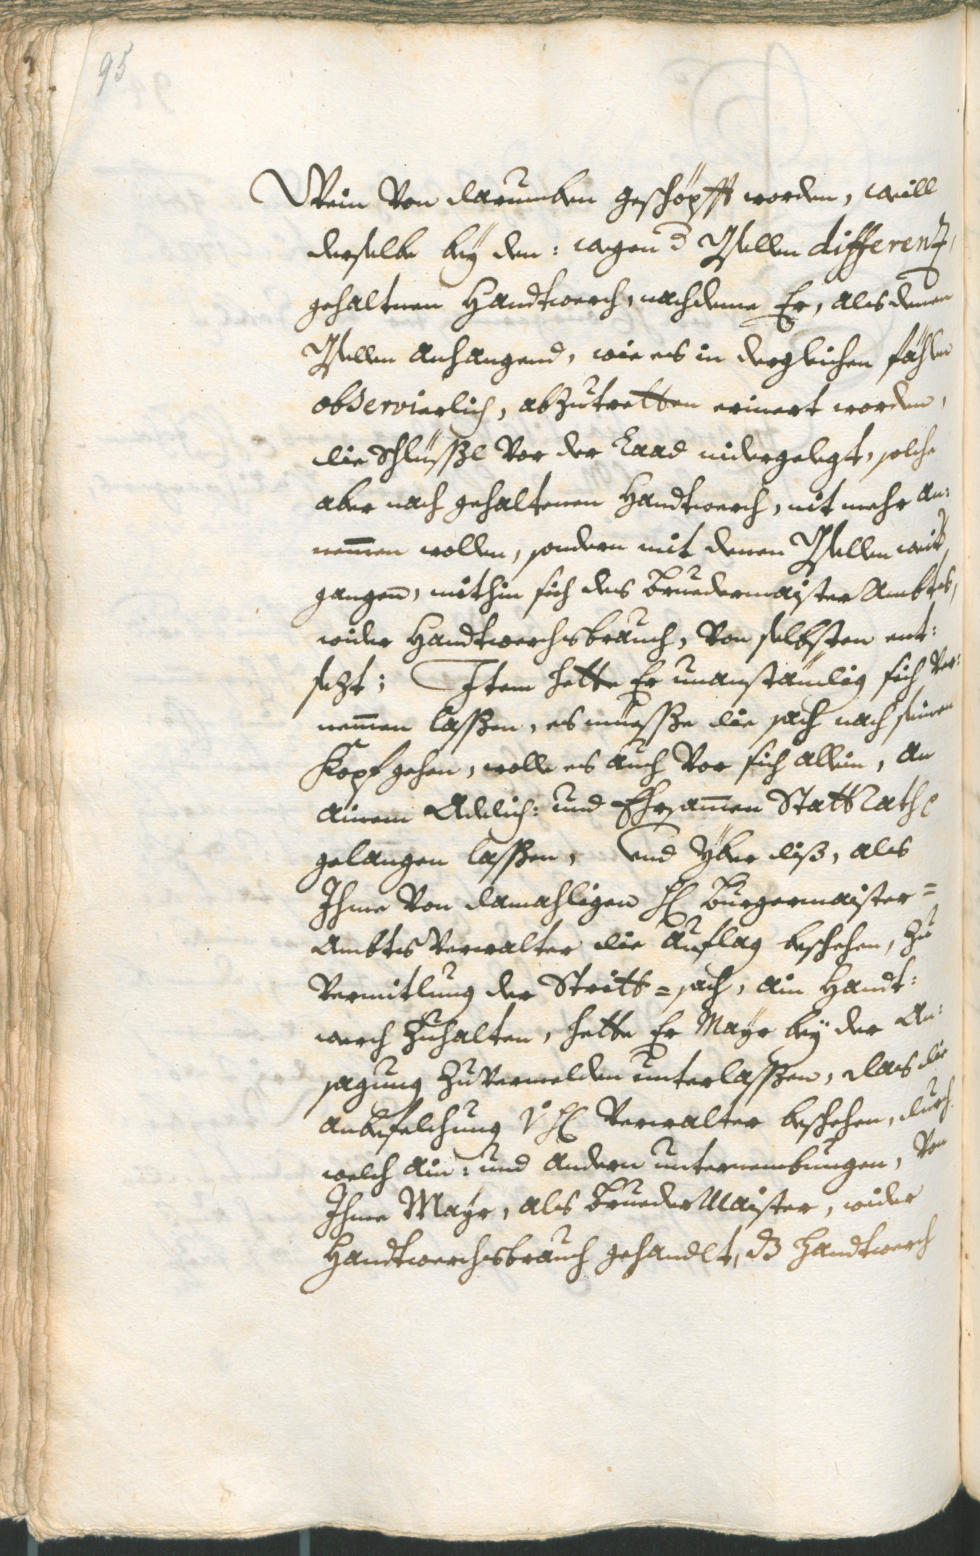 95
Wein von darumben geschöpfft worden, weill
derselbe beÿ den: wegen d Gsellen differenz,
gehaltnen Handtwerch, nachdeme Er, als denen
Gsellen anhangend, wie es in dergleichen fählen
observierlich, abzutretten erinert worden,
die Schlüssel vor der Laad nidergelegt, solche
aber nach gehaltenen Handtwerch, nit mehr an:
nem̄en wollen, sondern mit denen Gsellen weith
gangen̄, mithin sich des Bruedermaister Ambts,
wider Handtwerchsbrauch, von selbsten ent:
sezt; Item hette Er unanständig sich ver:
nem̄en lassen, es müesse die sach nach seinem
Kopf gehen, wolle es auch vor sich allein, an
ainem Adelich: und Ehrsam̄en Stattrathe
gelangen lassen, und yber diß, als
Ihme von damahligen H Burgermaister=
Ambts Verwalter die Auflag beschehen, zu
Vermitlung der Stritt=sach, ain Handt:
werch zuhalten, hette Er Maÿr beÿ der An:
sagung zuvermelden unterlassen, das die
Anbefelchung v H Verwalter beschehen, durch
welch ain: und andern unternembungen, von
Ihme Maÿr, als BruederMaister, wider
Handtwerchsbrauch gehandlt, dz Handtwerch